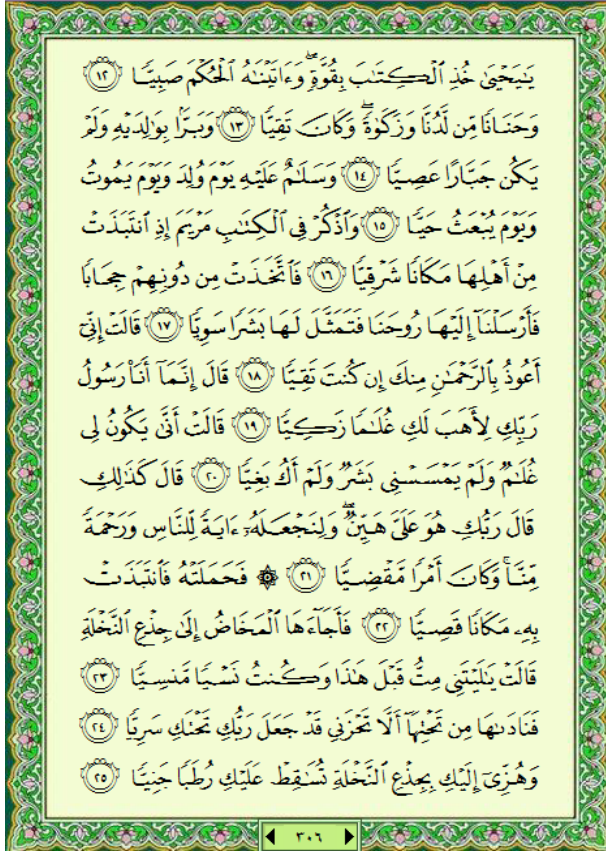 يَٰيَحۡيَىٰ خُذِ ٱلۡكِتَٰبَ بِقُوَّةٖۖ وَءَاتَيۡنَٰهُ ٱلۡحُكۡمَ صَبِيّٗا ١٢
وَحَنَانٗا مِّن لَّدُنَّا وَزَكَوٰةٗۖ وَكَانَ تَقِيّٗا ١٣ وَبَرَّۢا بِوَٰلِدَيۡهِ وَلَمۡ
يَكُن جَبَّارًا عَصِيّٗا ١٤ وَسَلَٰمٌ عَلَيۡهِ يَوۡمَ وُلِدَ وَيَوۡمَ يَمُوتُ
وَيَوۡمَ يُبۡعَثُ حَيّٗا ١٥ وَٱذۡكُرۡ فِي ٱلۡكِتَٰبِ مَرۡيَمَ إِذِ ٱنتَبَذَتۡ
مِنۡ أَهۡلِهَا مَكَانٗا شَرۡقِيّٗا ١٦ فَٱتَّخَذَتۡ مِن دُونِهِمۡ حِجَابٗا
فَأَرۡسَلۡنَآ إِلَيۡهَا رُوحَنَا فَتَمَثَّلَ لَهَا بَشَرٗا سَوِيّٗا ١٧ قَالَتۡ إِنِّيٓ
أَعُوذُ بِٱلرَّحۡمَٰنِ مِنكَ إِن كُنتَ تَقِيّٗا ١٨ قَالَ إِنَّمَآ أَنَا۠ رَسُولُ
رَبِّكِ لِأَهَبَ لَكِ غُلَٰمٗا زَكِيّٗا ١٩ قَالَتۡ أَنَّىٰ يَكُونُ لِي
غُلَٰمٞ وَلَمۡ يَمۡسَسۡنِي بَشَرٞ وَلَمۡ أَكُ بَغِيّٗا ٢٠ قَالَ كَذَٰلِكِ
قَالَ رَبُّكِ هُوَ عَلَيَّ هَيِّنٞۖ وَلِنَجۡعَلَهُۥٓ ءَايَةٗ لِّلنَّاسِ وَرَحۡمَةٗ
مِّنَّاۚ وَكَانَ أَمۡرٗا مَّقۡضِيّٗا ٢١ ۞ فَحَمَلَتۡهُ فَٱنتَبَذَتۡ
بِهِۦ مَكَانٗا قَصِيّٗا ٢٢ فَأَجَآءَهَا ٱلۡمَخَاضُ إِلَىٰ جِذۡعِ ٱلنَّخۡلَةِ
قَالَتۡ يَٰلَيۡتَنِي مِتُّ قَبۡلَ هَٰذَا وَكُنتُ نَسۡيٗا مَّنسِيّٗا ٢٣
فَنَادَىٰهَا مِن تَحۡتِهَآ أَلَّا تَحۡزَنِي قَدۡ جَعَلَ رَبُّكِ تَحۡتَكِ سَرِيّٗا ٢٤
وَهُزِّيٓ إِلَيۡكِ بِجِذۡعِ ٱلنَّخۡلَةِ تُسَٰقِطۡ عَلَيۡكِ رُطَبٗا جَنِيّٗا ٢٥
٣٠٦